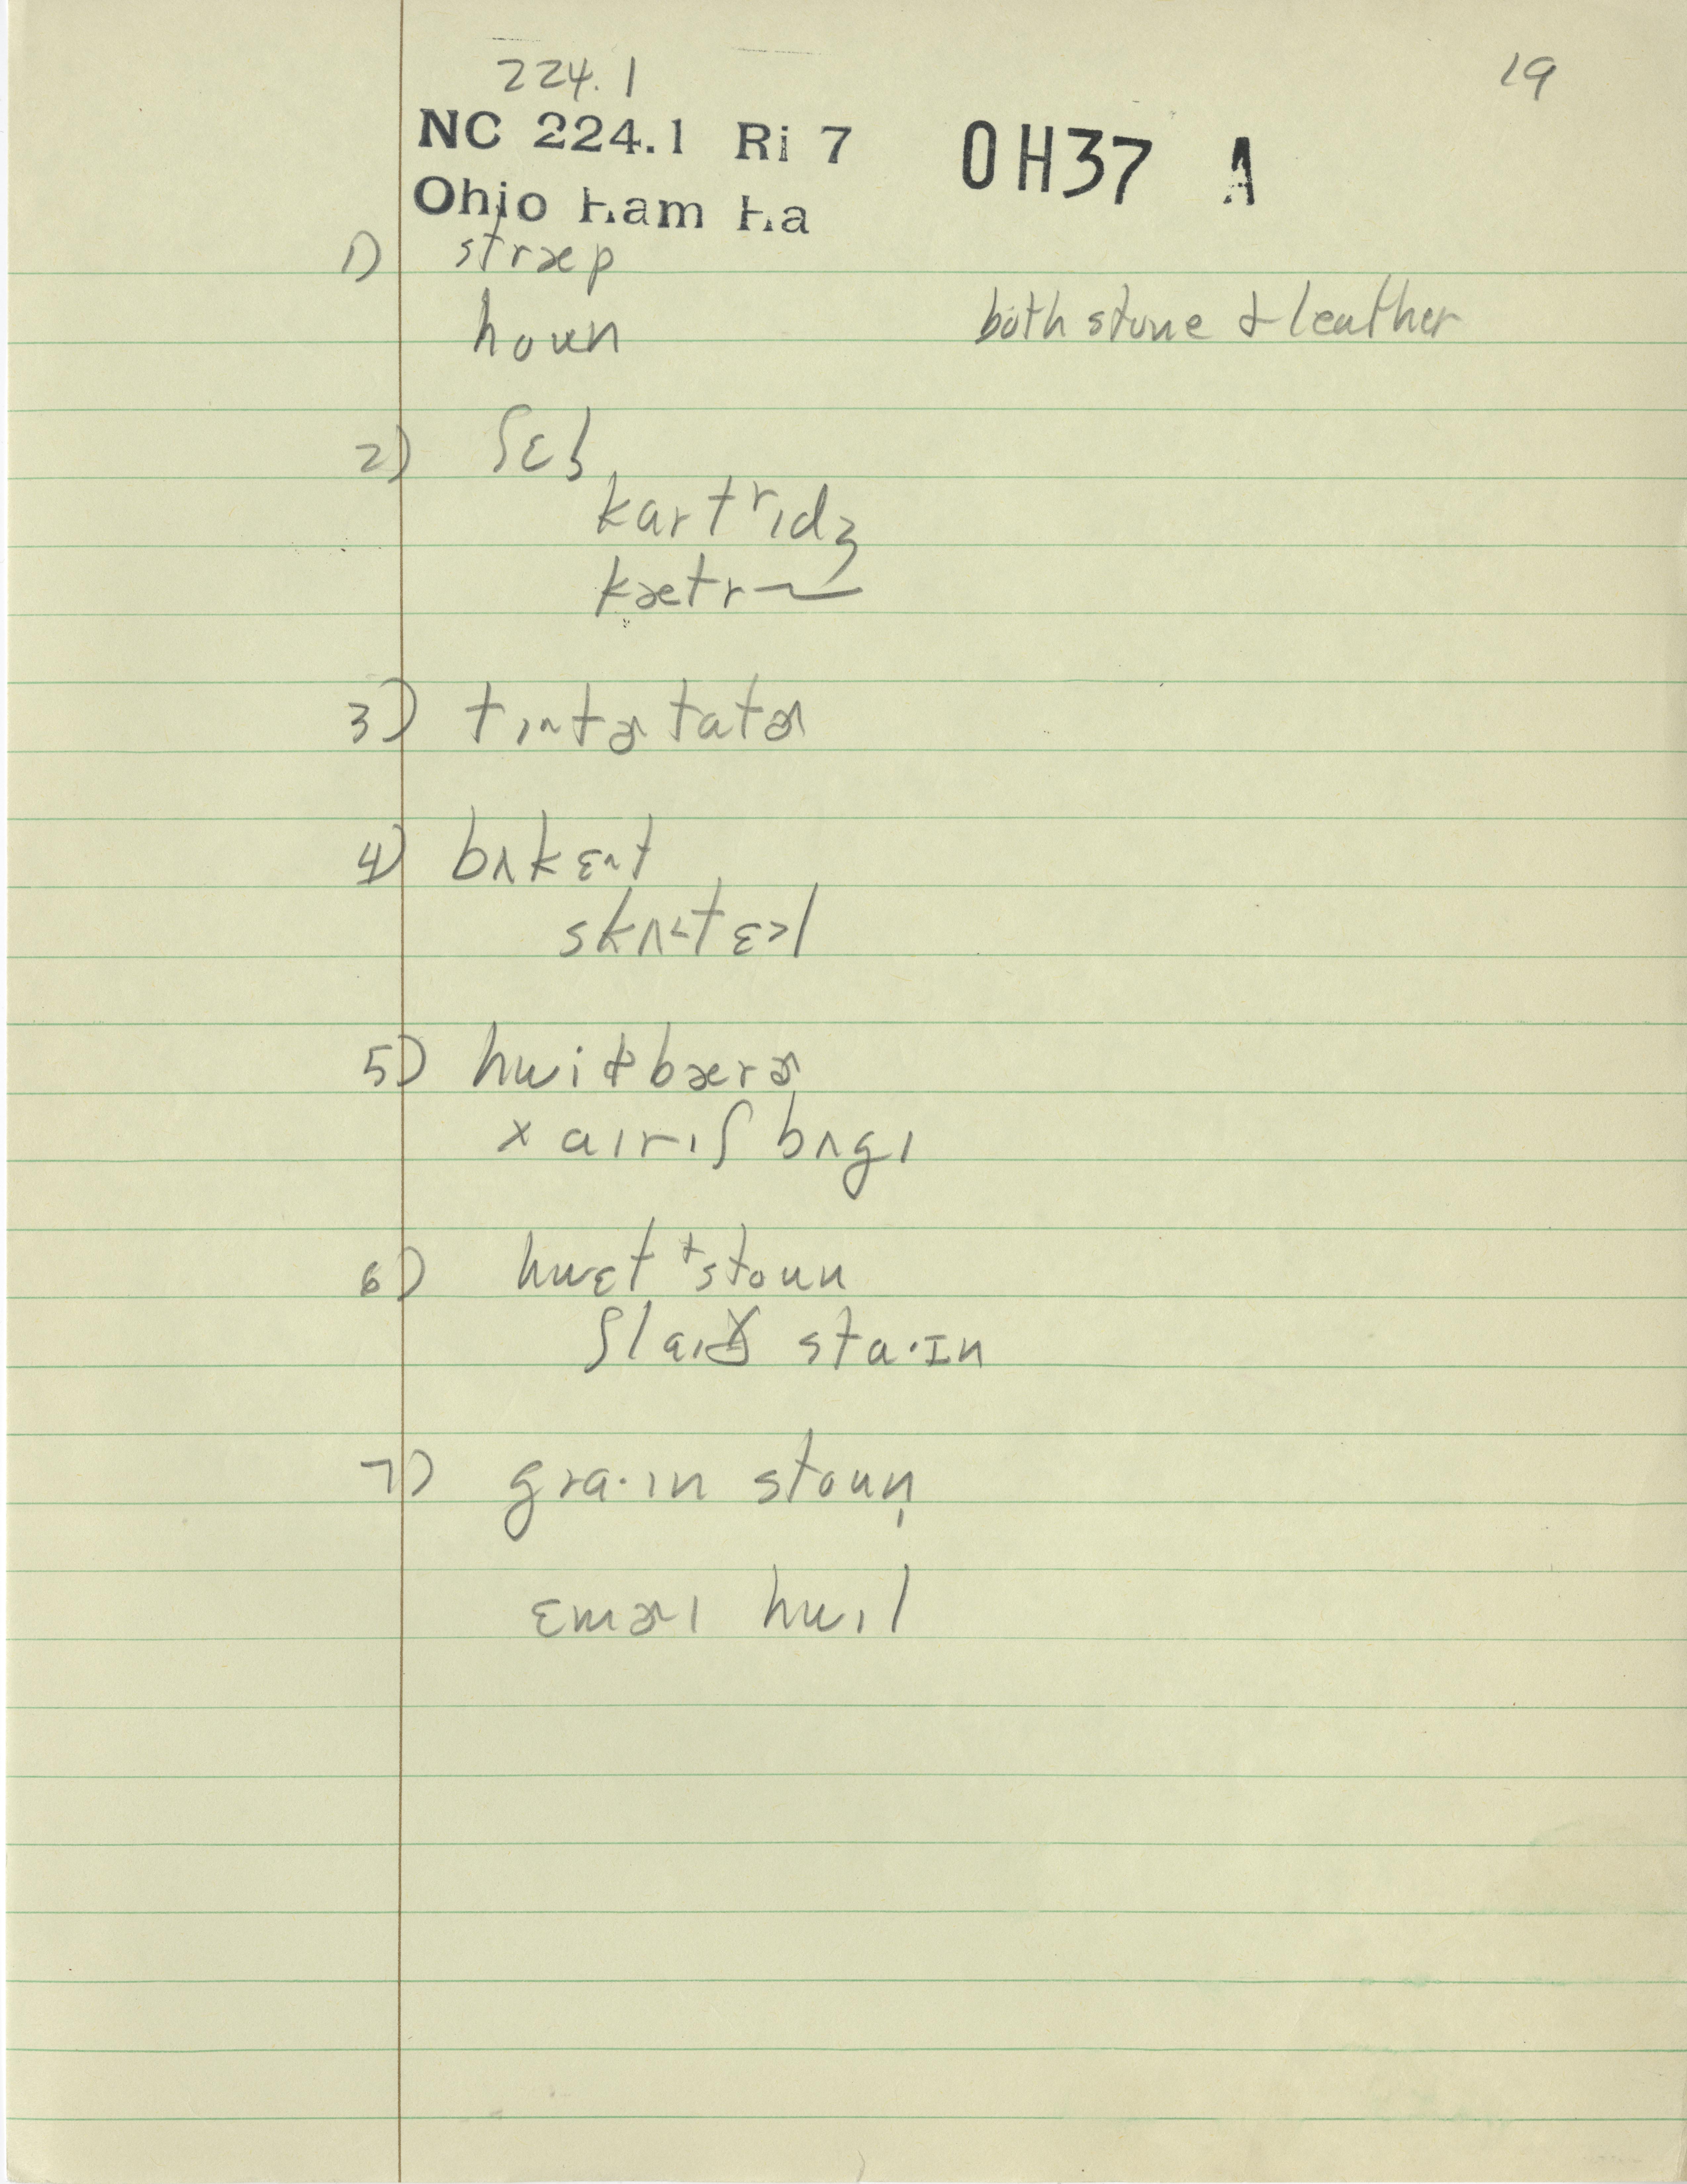 224.1 19
NC 224.1 Ri 7 OH37 A
Ohio Ham Ha
1) stræp
houn both stone & leather
2) ʃɛl
kartʳɪdʒ
kætr~
3) tɪntɚtatɚ
4) bʌkɛ~t
skʌ<tɛ>l
5) hwilbærɚ
x aɪrɪʃ bʌgɪ
6) hwɛt ᵗstoun
slaɪð sta·ɪn
7) gra·ɪn stoun
ɛmɚɪ hwil